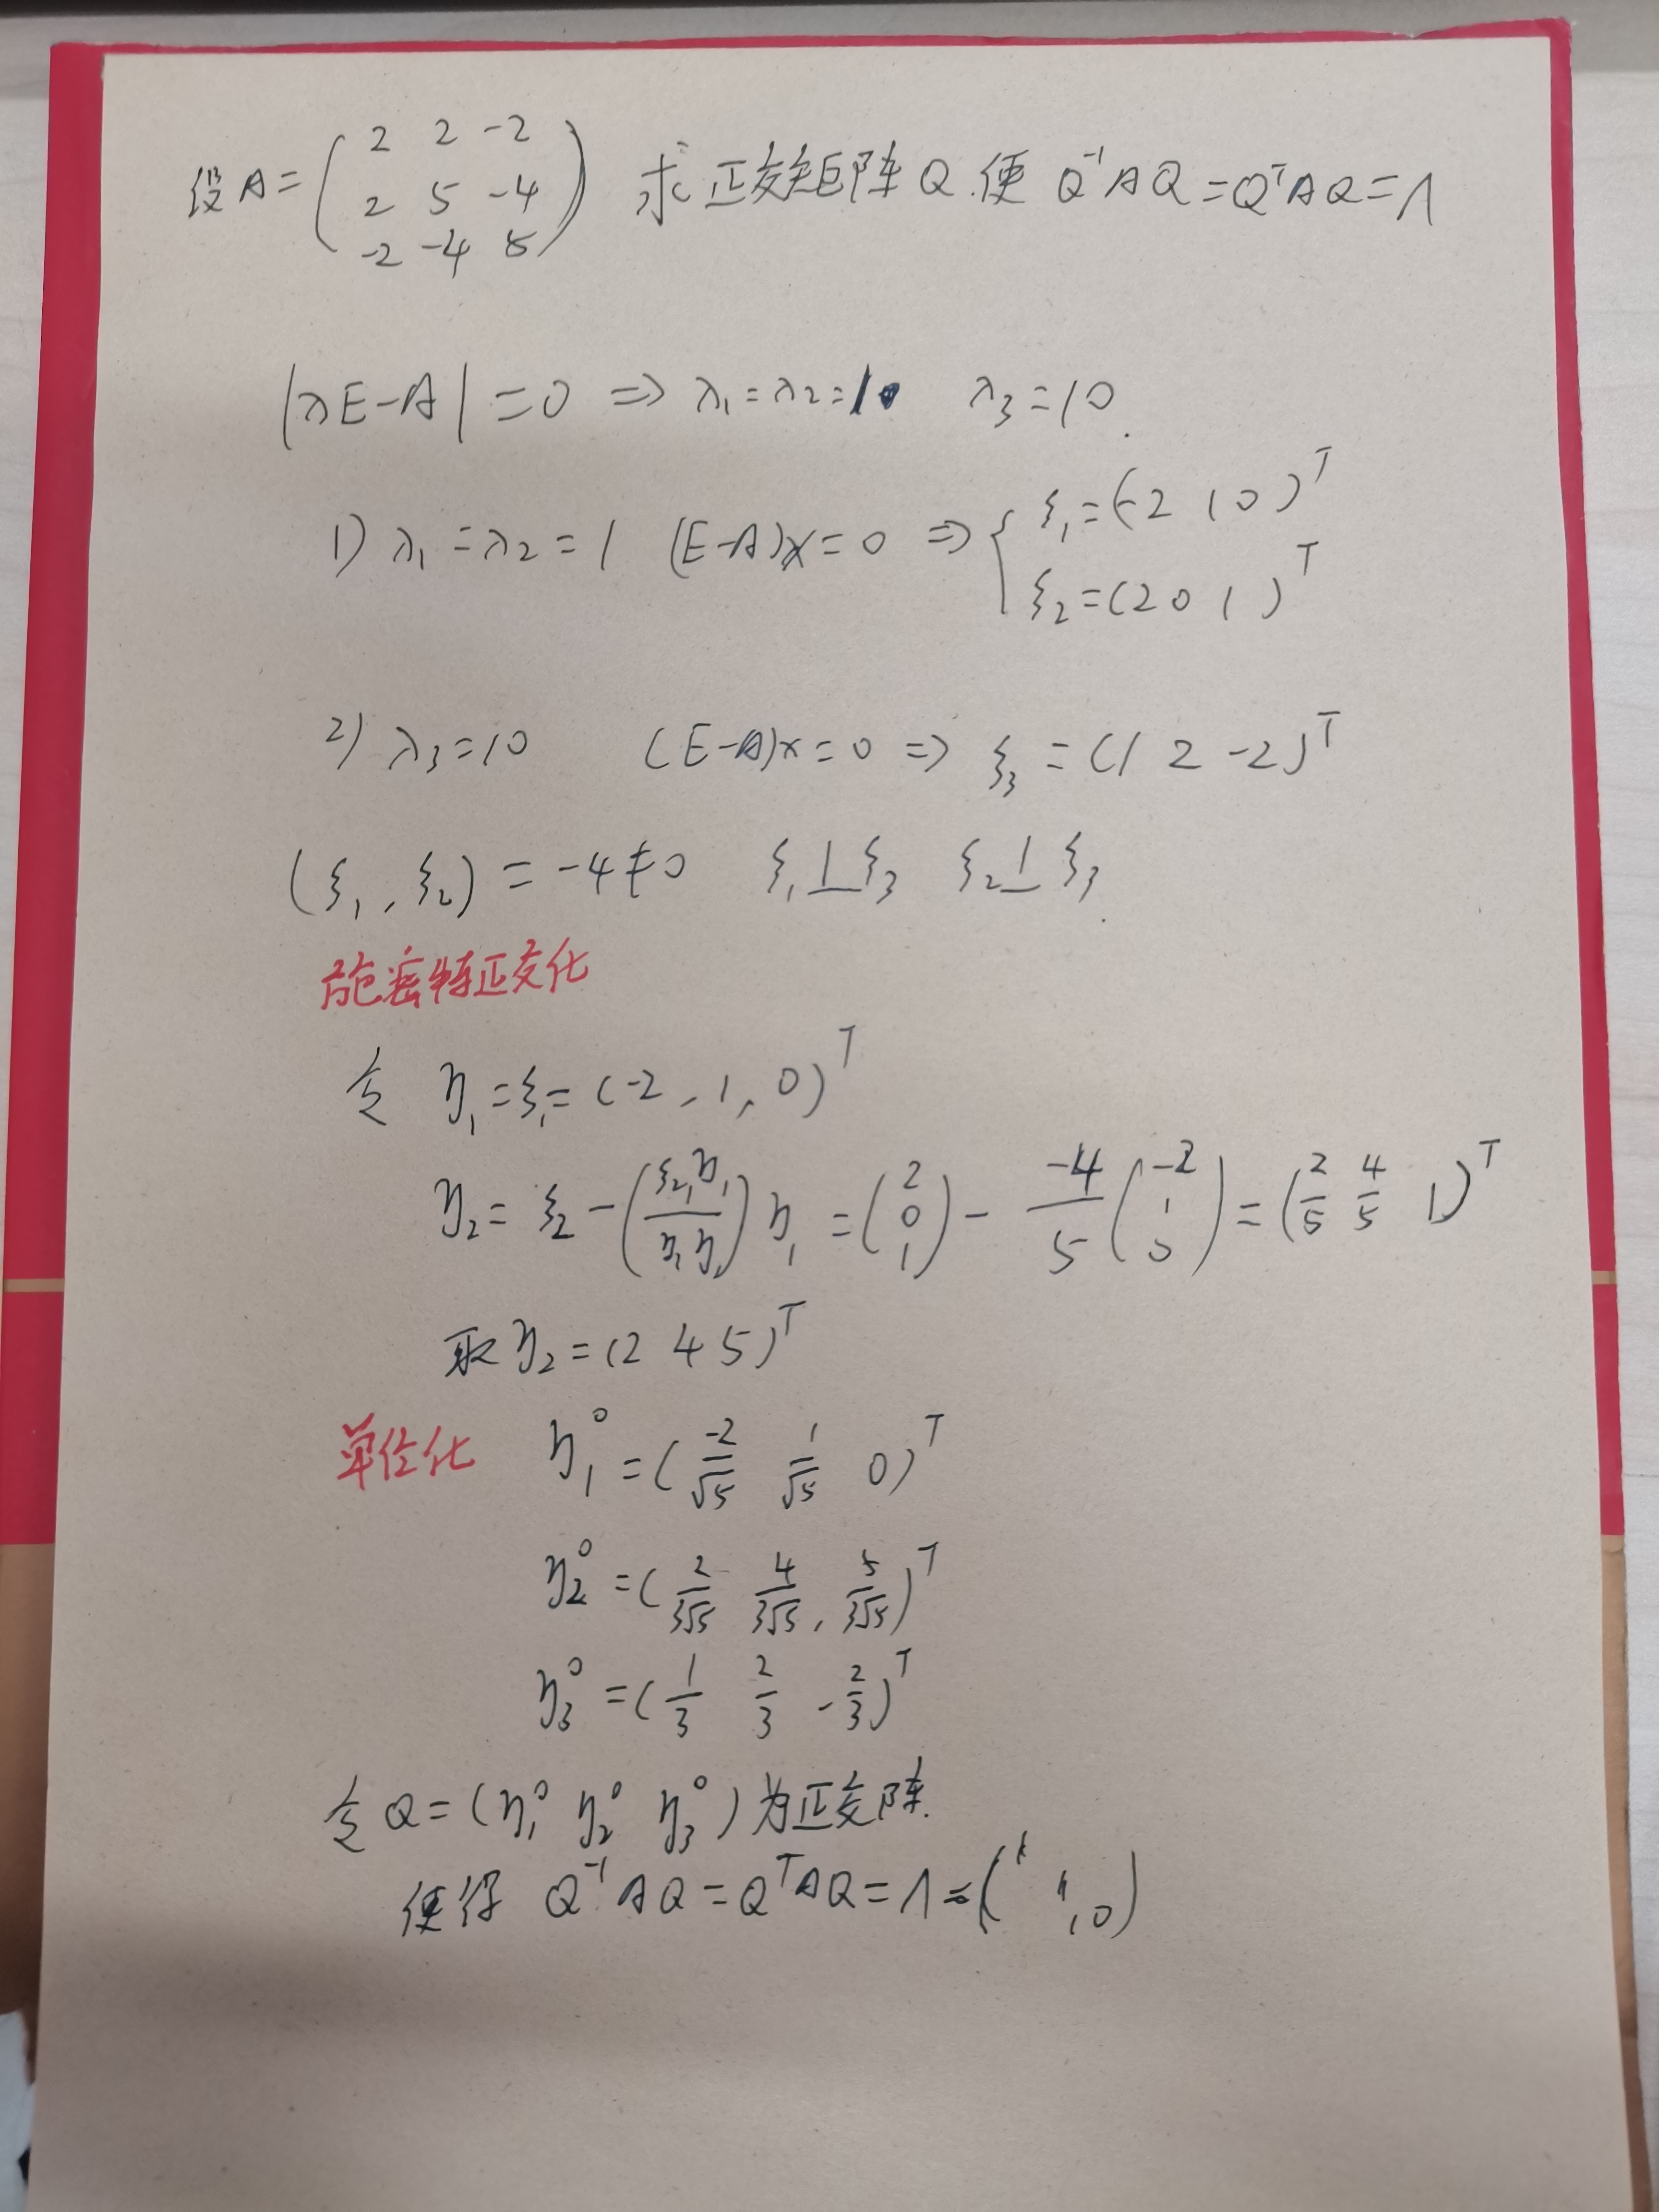 设A=(2 2 -2
2 5 -4
-2 -4 5) 求正交矩阵Q.使 Q⁻¹AQ=QᵀAQ=Λ
|λE-A|=0 ⇒ λ₁=λ₂=1 λ₃=10.
1) λ₁=λ₂=1 (E-A)x=0 ⇒ { ξ₁=(-2 1 0)ᵀ
ξ₂=(2 0 1)ᵀ
2) λ₃=10 (E-A)x=0 ⇒ ξ₃=(1 2 -2)ᵀ
(ξ₁,ξ₂)=-4≠0 ξ₁⊥ξ₃ ξ₂⊥ξ₃.
施密特正交化
令 η₁=ξ₁=(-2,1,0)ᵀ
η₂=ξ₂-(ξ₂,η₁/η₁η₁)η₁=(2 0 1)-(-4/5)(-2 1 0)=(2/5 4/5 1)ᵀ
取η₂=(2 4 5)ᵀ
单位化 η₁⁰=(-2/√5 1/√5 0)ᵀ
η₂⁰=(2/3√5 4/3√5, 5/3√5)ᵀ
η₃⁰=(1/3 2/3 -2/3)ᵀ
令Q=(η₁⁰ η₂⁰ η₃⁰)为正交阵.
使得 Q⁻¹AQ=QᵀAQ=Λ=(1 1 10)